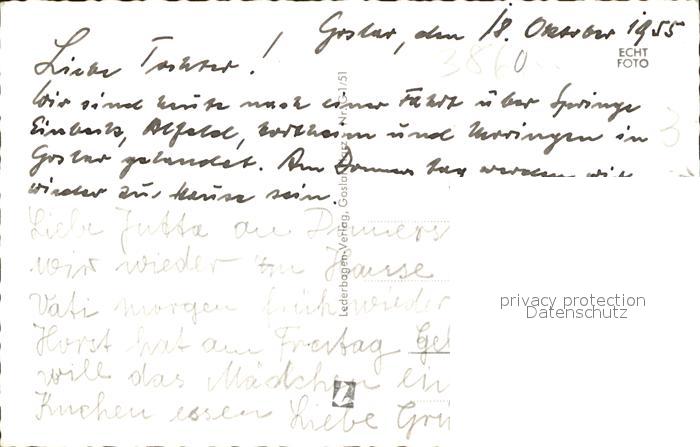 Goslar, den 18. Oktober 1955
ECHT
FOTO
3860
Liebe Tochter!
Wir sind heute nach einer Fahrt über Springe
Einbeck, Alfeld, Northeim und Moringen in
Goslar gelandet. Am Donnerstag werden wir
wieder zur Hause sein.
Liebe Jutta am Donners
wir wieder zu Hause
Vati morgen früh wieder
Horst hat am Freitag Ge
will das Mädchen ein
Kuchen essen Liebe Grü
Lederbogen-Verlag, Goslar
privacy protection
Datenschutz